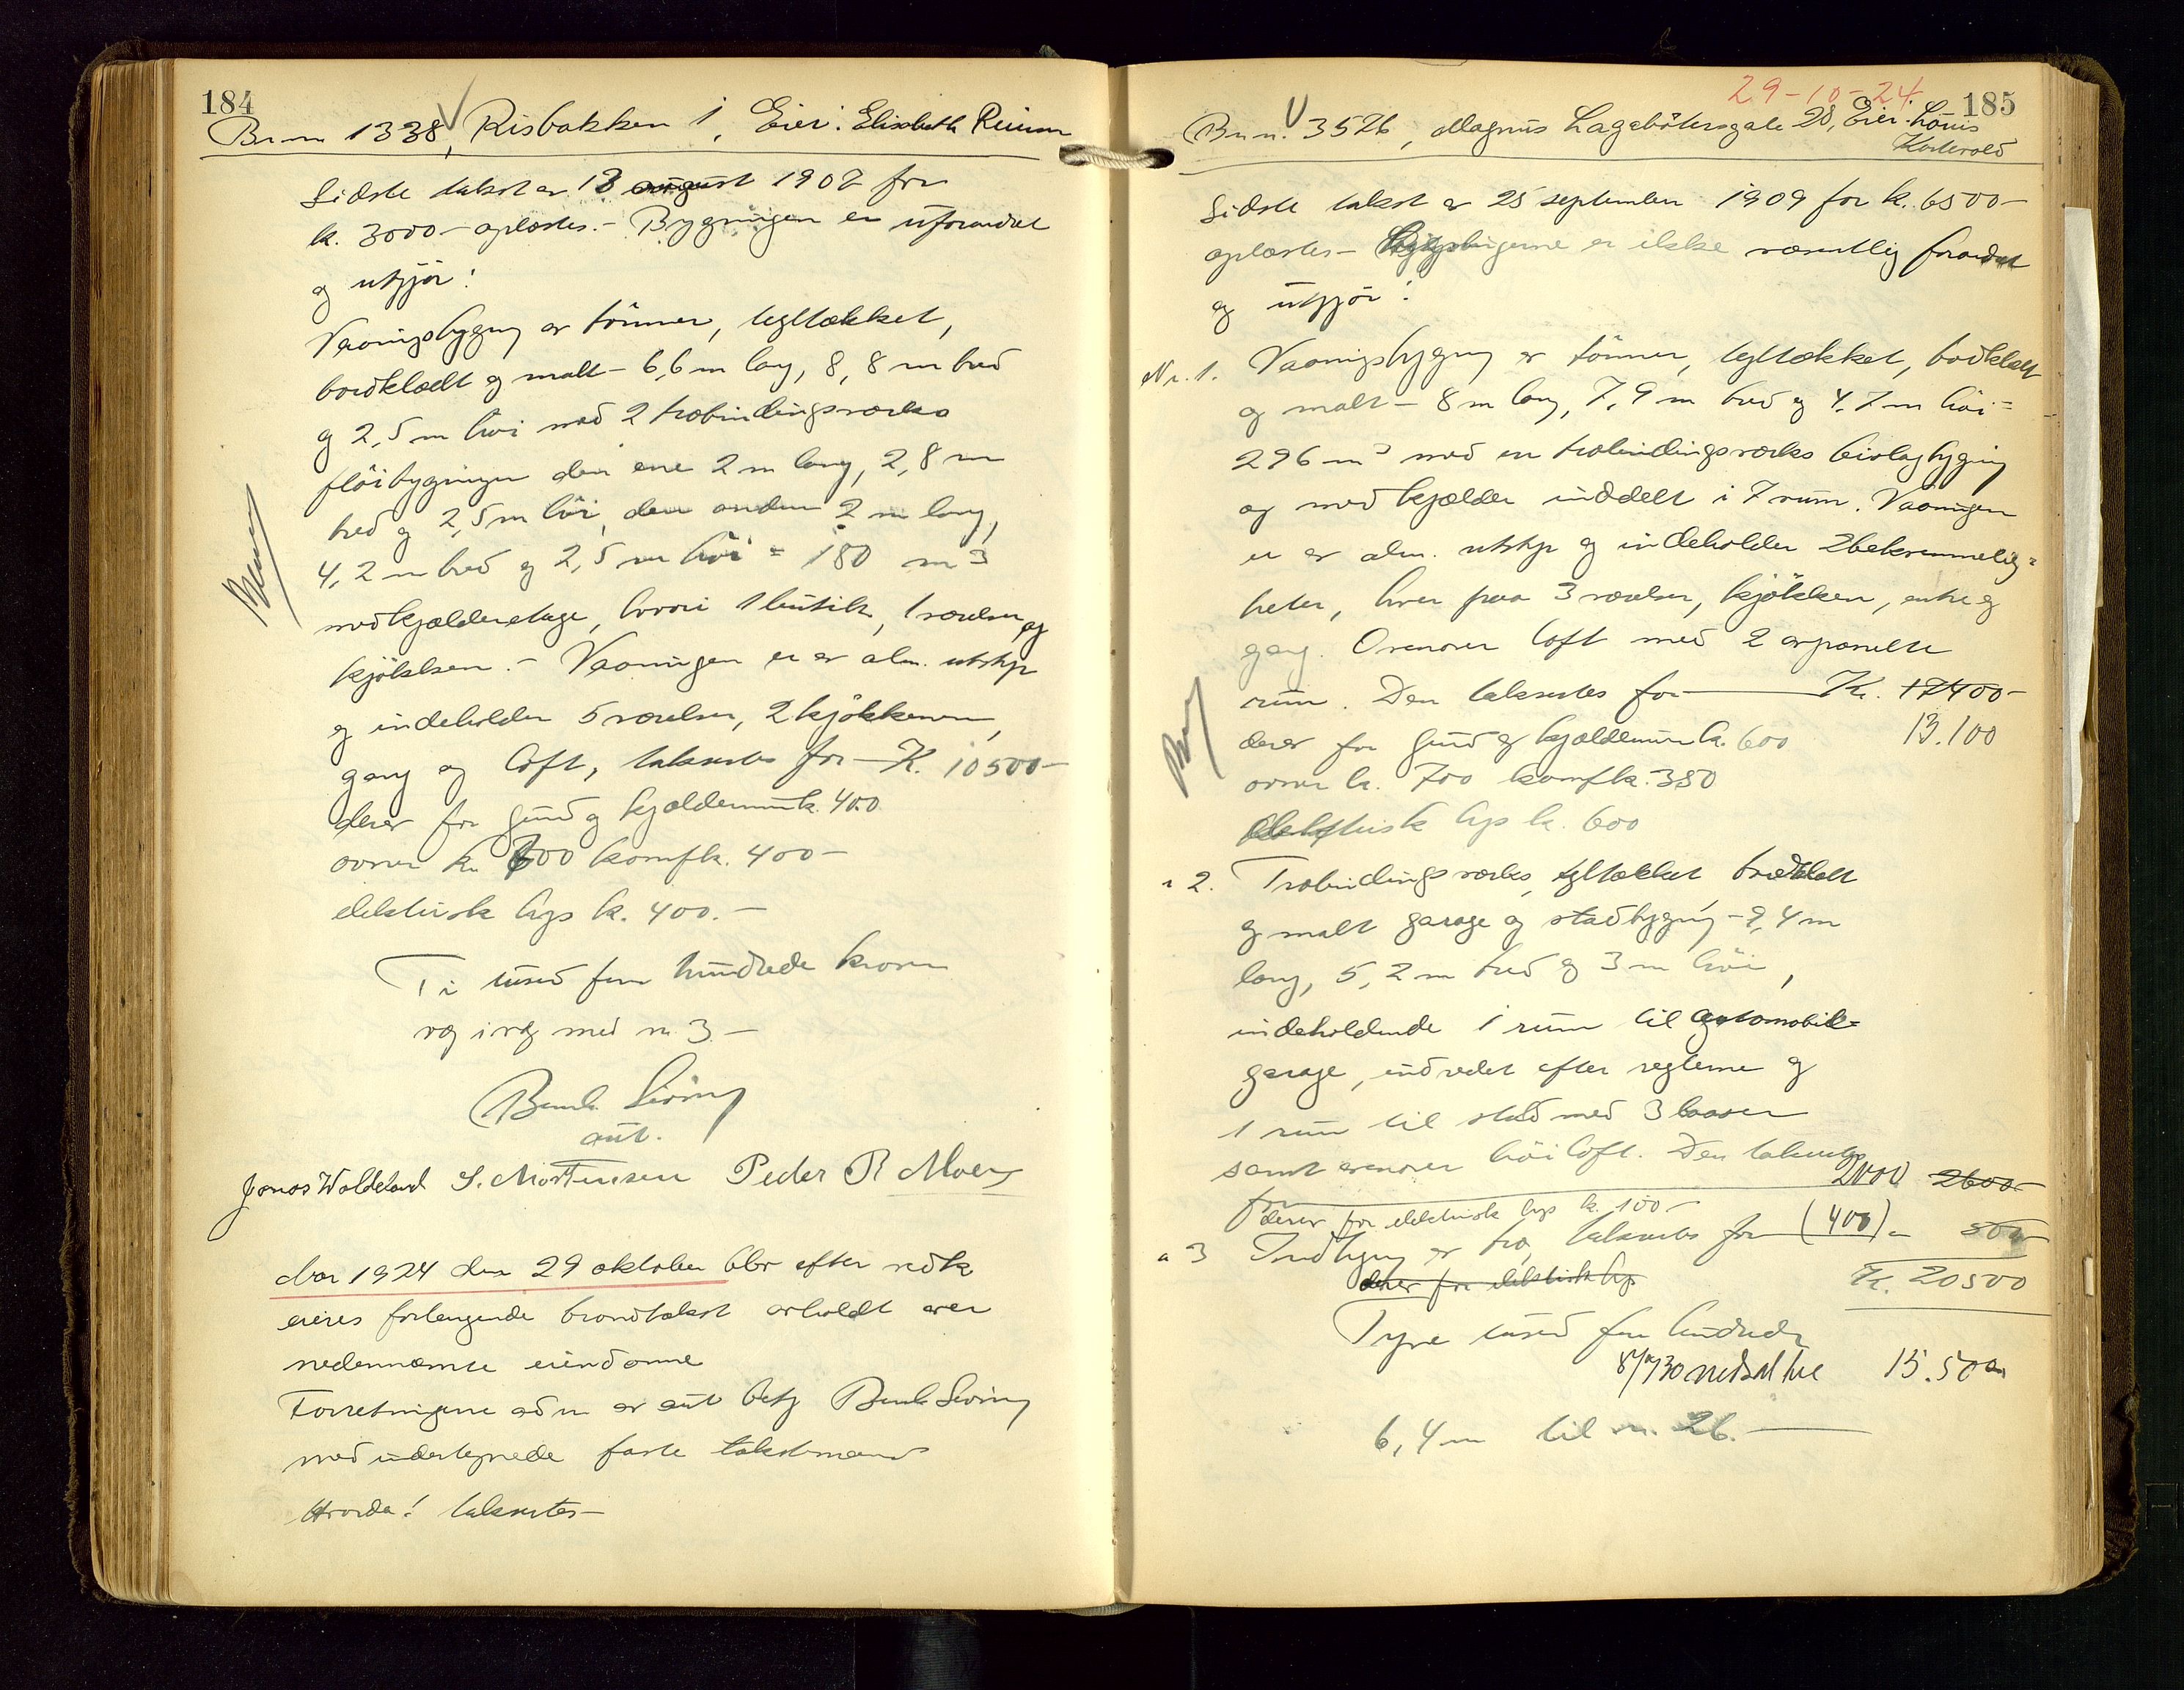 184
Br.nr 1338, Risbakken 1, Eier: Elisabeth Reiness
Sidste takst av 13 august 1902 for
k. 3000 – oplæstes. – Bygningen er uforandret
og utgjør:
Vaaningsbygning av tømmer, tegltækket,
bordklædt og malt – 6,6 m lang, 8,8 m bred
og 2,5 m høi med 2 træbindingsverks
fløibygninger den ene 2 m lang, 2,8 m
bred og 2,5 m høi, den anden 2 m lang,
4,2 m bred og 2,5 m høi = 180 m3
med kjælderetage, hvori 1 butik, 1 værelse og
kjøkken. – Vaaningen er av alm. utstyr
og indeholder 5 værelser, 2 kjøkkener,
gang og loft, takseres for – K. 10500 –
derav for grund og kjældermur k. 400
ovner k. 600 komf k. 400 –
elektrisk lys k. 400. –
Ti tused fem hundrede kroner
væg i væg med nr. 3 –
Bernh. Sivring
aut.
Jonas Woldeland S. Mortensen Peder R Moe
Aar 1924 den 29 oktober blev efter vedk
eieres forlangende brandtakst avholdt over
nedennævnte eiendomme
Forretningene adm av aut betj Bernh Sivring
med undertegnede faste takstmænd
Hvorda! takseres –
29-10-24
185
Br.nr. 3526, Magnus Lagabøtersgate 28, Eier: Louis
Sidste takst av 25 september 1909 for k. 6500 –
oplæstes – Bygningerne er ikke væsentlig forandret
og utgjør:
Nr. 1. Vaaningsbygning av tømmer, tegltækket, bordklædt
og malt – 8 m lang, 7,9 m bred og 4,7 m høi =
296 m3 med en træbindingsverks bislagbygning
og med kjælder inddelt i 7 rum. Vaaningen
er av alm. utstyr og indeholder 2 bekvemmelig=
heter, hver paa 3 værelser, kjøkken, entre og
gang. Ovenover loft med 2 avpanelte
rum. Den takseres for — Kr. 17400 –
derav for grund og kjældermur k. 600 13.100
ovner k. 700 komf k. 350
Elektrisk lys k. 600
" 2. Træbindingsverks, tegltækket bordklædt
og malt garage og staldbygning – 9,4 m
lang, 5,2 m bred og 3 m høi,
indeholdende 1 rum til automobil=
garage, indredet efter reglerne og
1 rum til stald med 3 baaser
samt ovenover høiloft. Den takseres
for 2000 2600 –
derav for elektrisk lys k. 100 –
" 3 Indhegning av træ, takseres for (400) " 500
derav for elektrisk lys Kr. 20500
Tyve tused fem hundrede
8/4 30 nedsat til 15.500
6,4 m til nr. 26. —